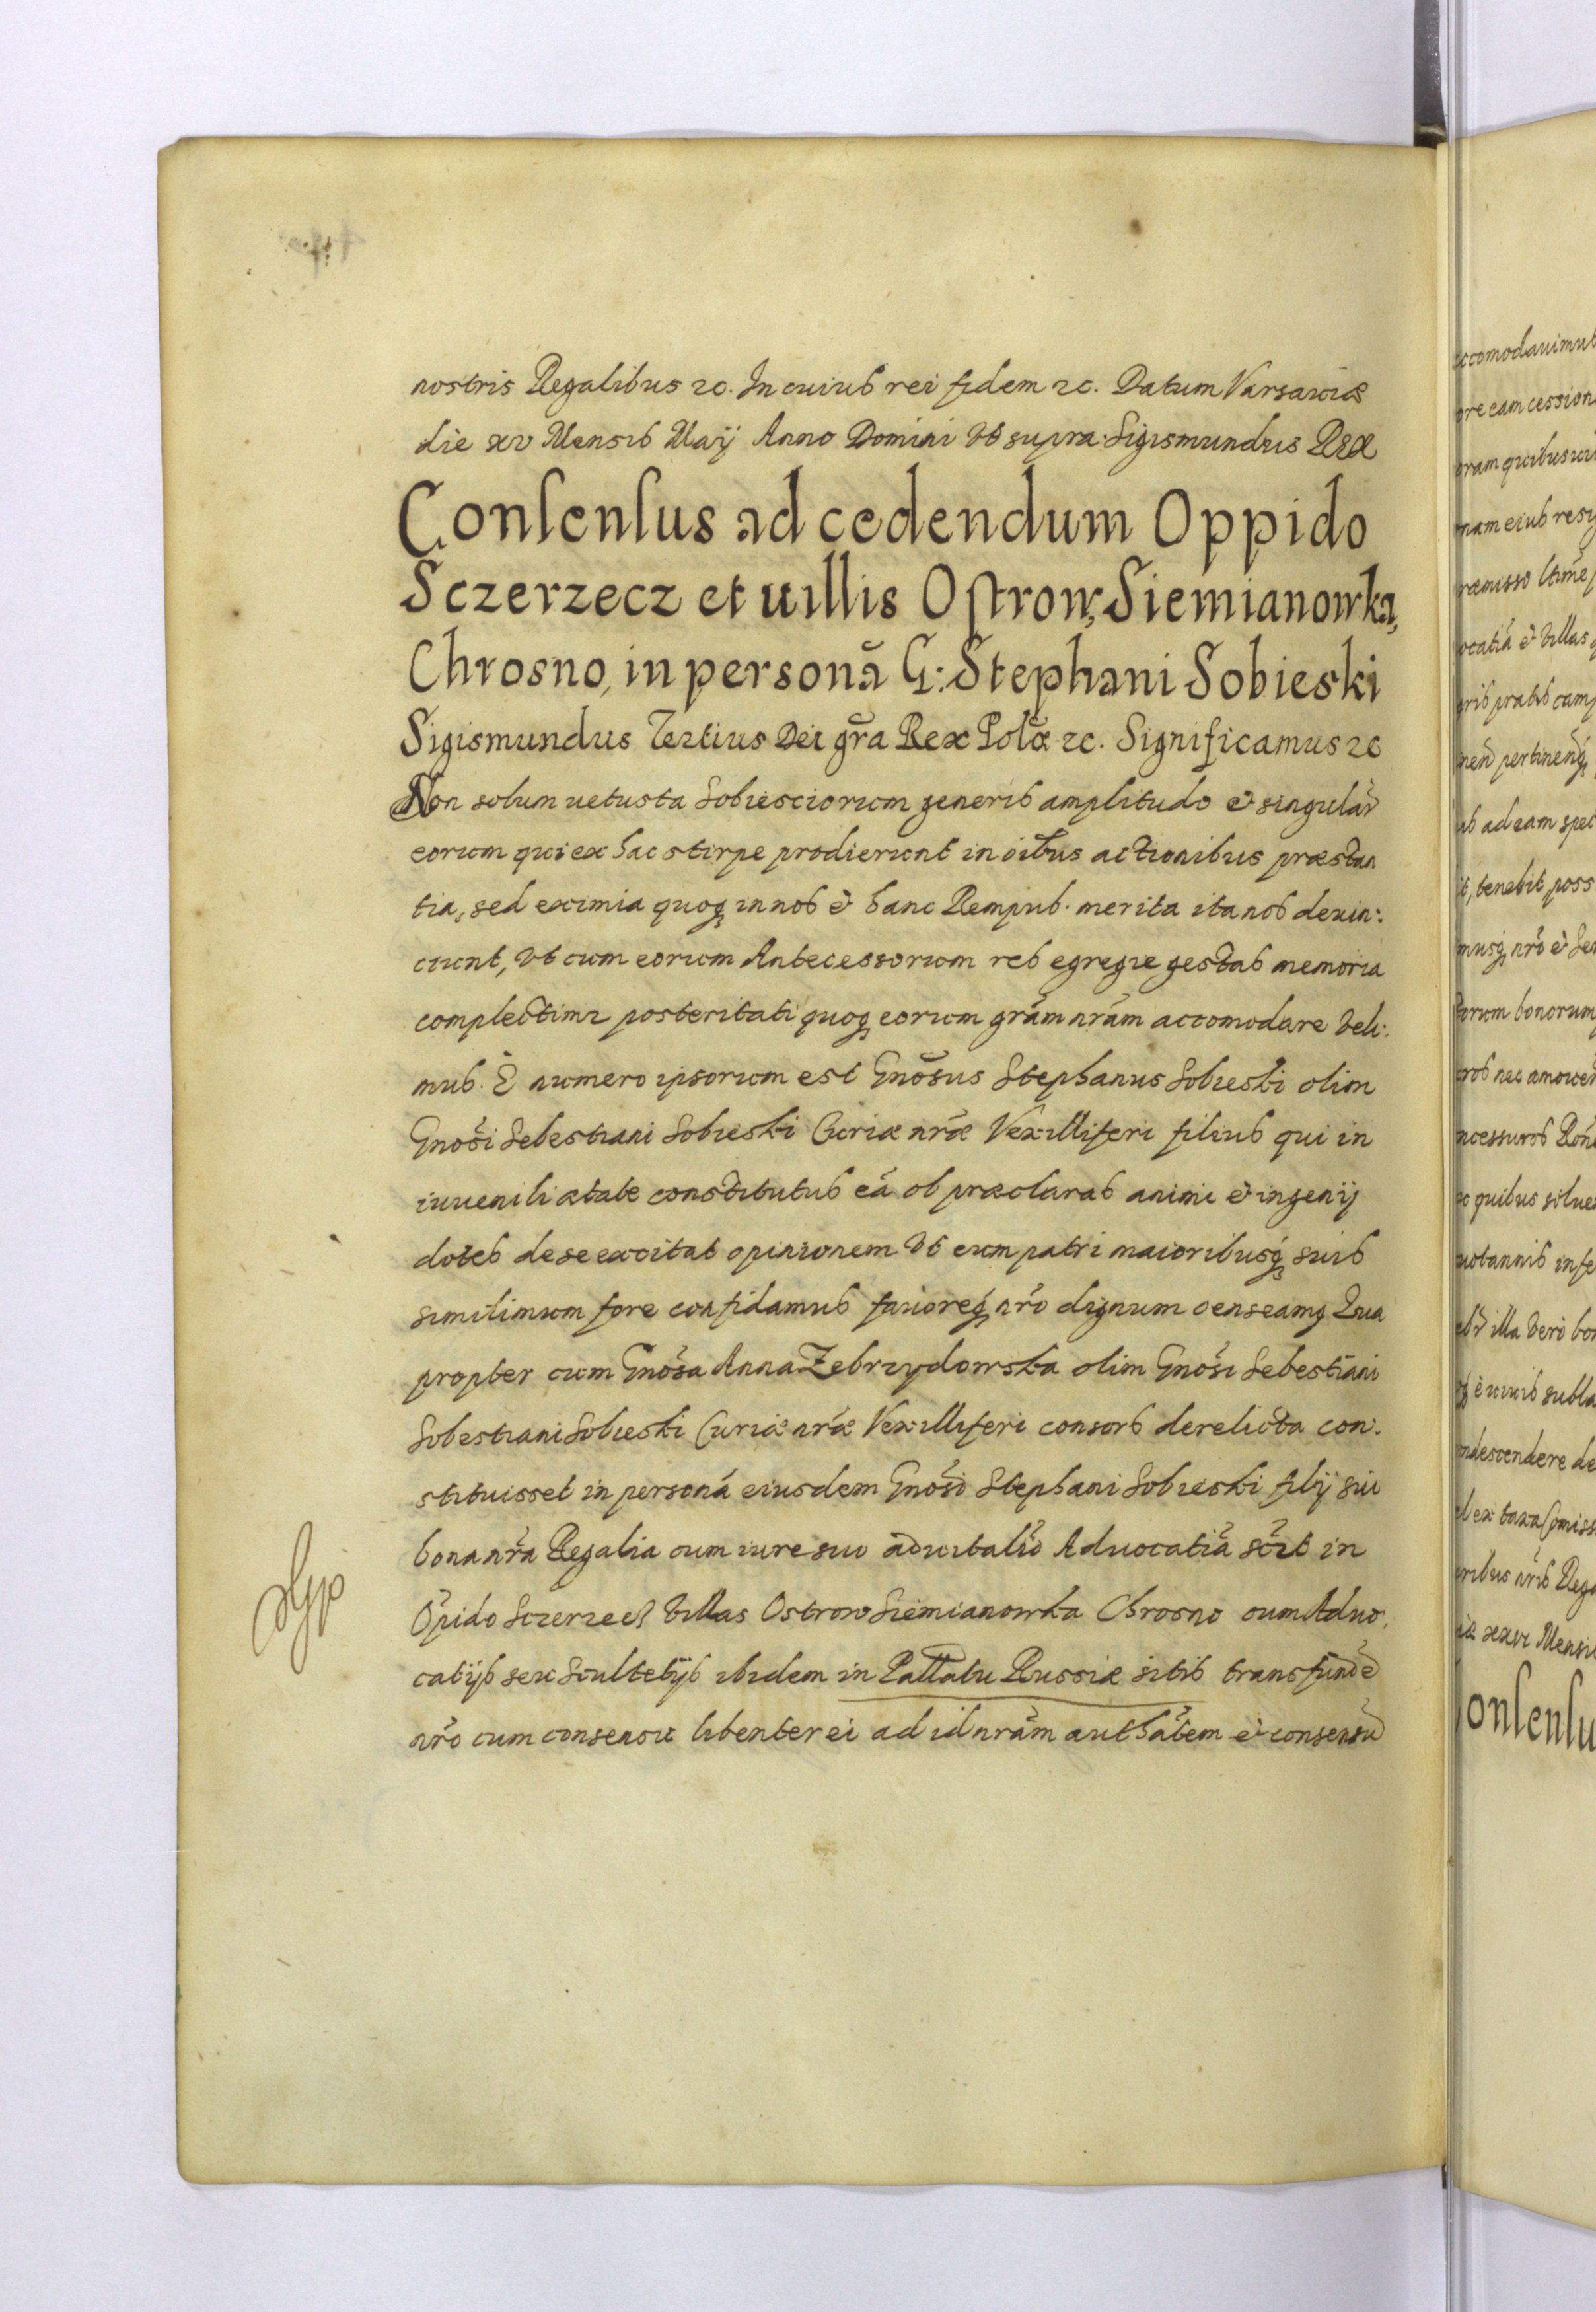 nostris Regalibus ꝛc. In cuius rei fidem ꝛc. Datum Varsauiæ
die xv Mensis Maij Anno Domini Vt supra: Sigismundus Rex
Conſenſus ad cedendum Oppido
Sczerzecz et uillis Oſtrow, Siemianowka,
Chrosno, in personã G: Stephani Sobieski
Sigismundus Tertius Dei gr̃a Rex Polæ ꝛc. Significamus ꝛc
Non solum uetusta Sobiesciorum generis amplitudo et singular̃
eorum qui ex hac stirpe prodierunt in oĩbus actionibus præstan
tia, sed eximia quoqꝫ in nos et hanc Rempub. merita ita nos deuin:
ciunt, Vt cum eorum Antecessorum res egregie gestas memoria
complectimr posteritati quoqꝫ eorum gr̃am nr̃am accomodare Veli:
mus. E numero ipsorum est Gnõsus Stephanus Sobieski olim
Gnõsi Sebestiani Sobieski Curiæ nr̃æ Vexilliferi filius qui in
iuuenili ætate constitutus eã ob præclaras animi et ingenij
dotes de se excitat opinionem Vt eum patri maioribusqꝫ suis
simillimum fore confidamus fauoreqꝫ nr̃o dignum censeamꝫ Qua
propter cum Gnõsa Anna Zebrzydowska olim Gnõsi Sebestiani
Sobestiani Sobieski Curiæ nr̃æ Vexilliferi consors derelicta con:
stituisset in personã eiusdem Gnõsi Stephani Sobieski filij sui
bona nr̃a Regalia cum iure suo aduitali Aduocatiã sc̃rt in
Opido Sczerzecz Villas Ostrow Siemianowka Chrosno cum Aduo:
catijs seu Scultetijs ibidem in Pallatu Russiæ sitis transfundẽ
nr̃o cum consensu libenter ei ad id nr̃am authãtem et consensũ
accomodauimus
ore eam cession
nam eius resi
ocatiã et Villas
ris pratis camp
pertinen
us ad eam spec
it, tenebit poss
musqꝫ nr̃o et Se
orum bonorum
ros nec amouen
ncessuros
quibus solue
uotannis infe
illa Vero bo
subla
ondescendere de
el ex taxa Comiss
ribus nr̃is Rega
iæ xxvi Mensis
onſenſu